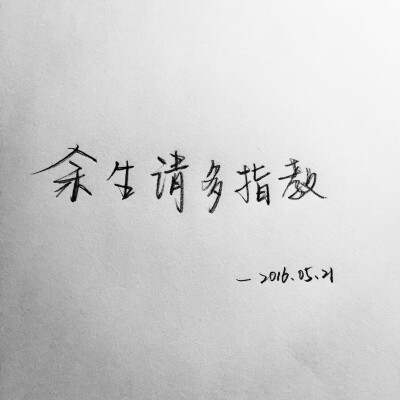 余生请多指教
－2016.05.21